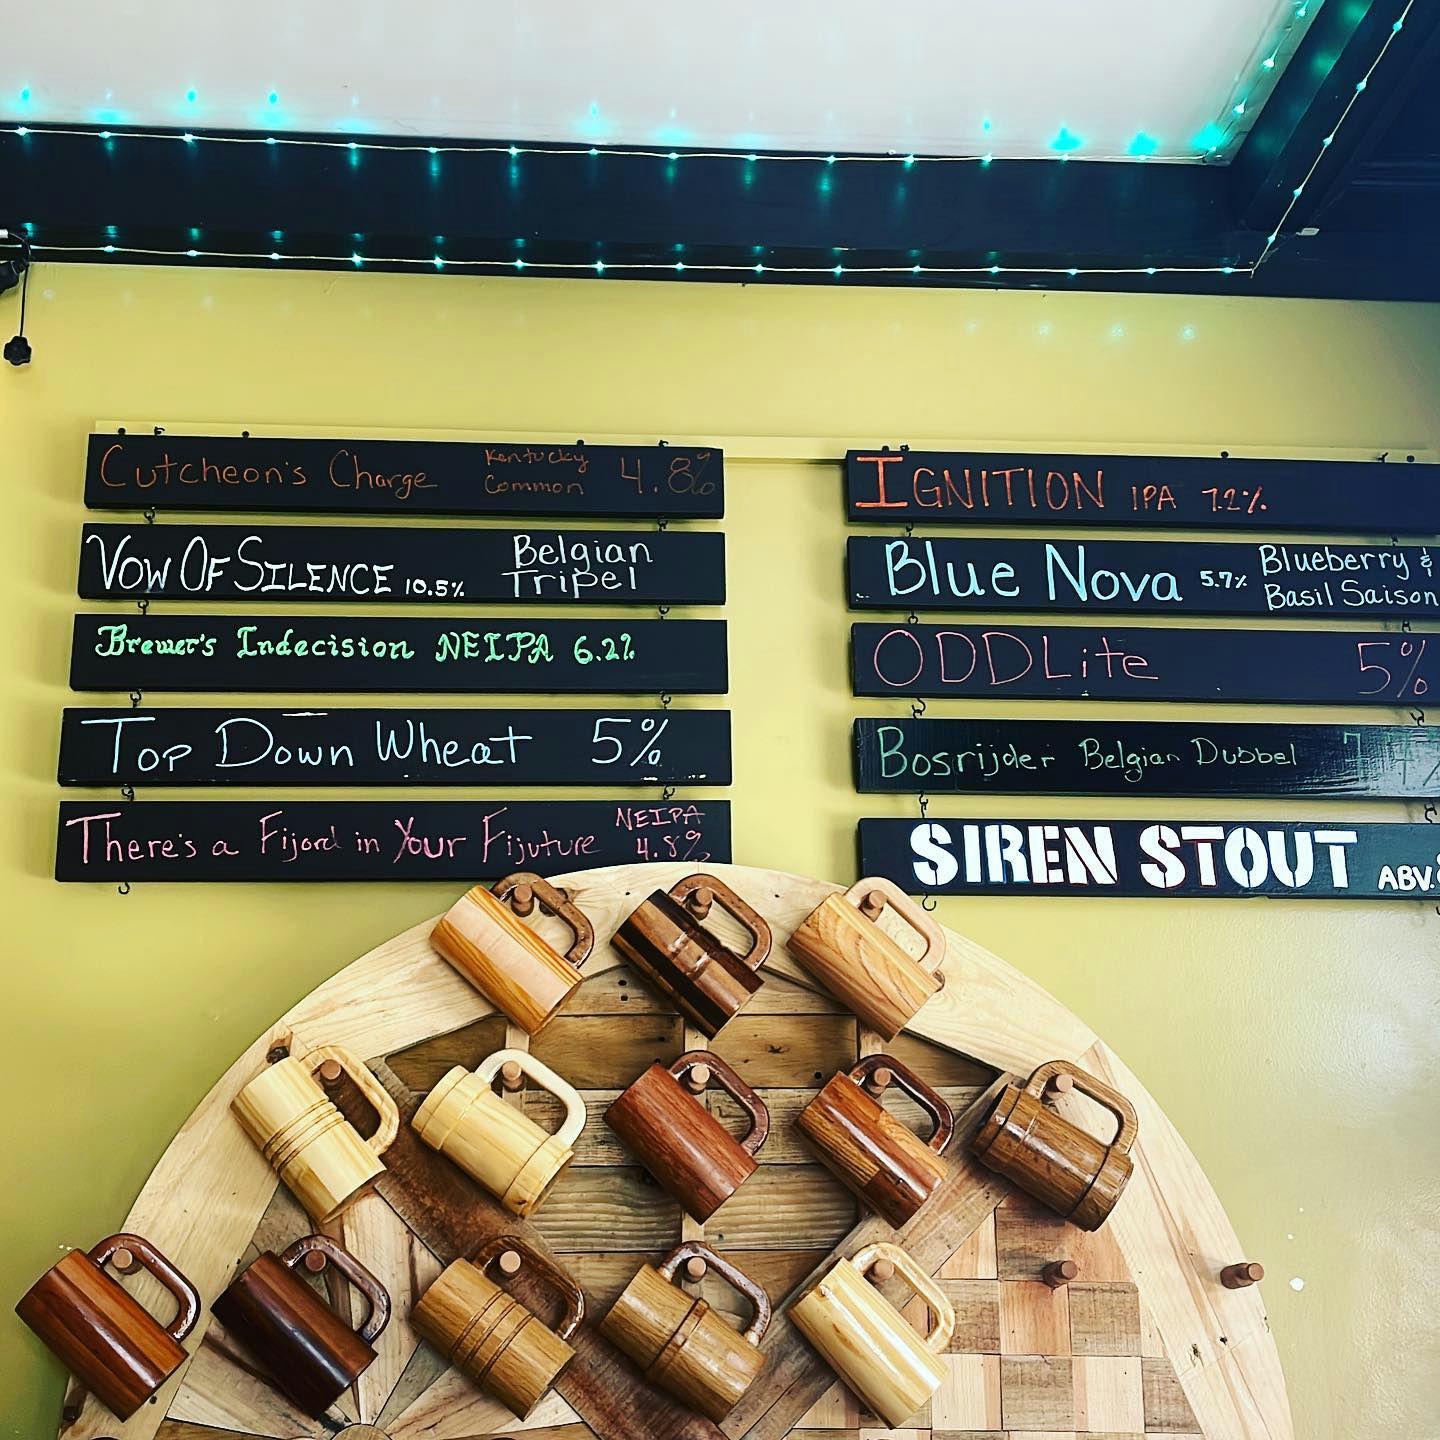 Cutcheon's Charge Kentucky Common 4.8%
VOW OF SILENCE 10.5% Belgian Tripel
Brewer's Indecision NEIPA 6.2%
Top Down Wheat 5%
There's a Fijord in Your Fijuture NEIPA 4.8%
IGNITION IPA 7.2%
Blue Nova 5.7% Blueberry & Basil Saison
ODDLite 5%
Bosrijder Belgian Dubbel
SIREN STOUT ABV.